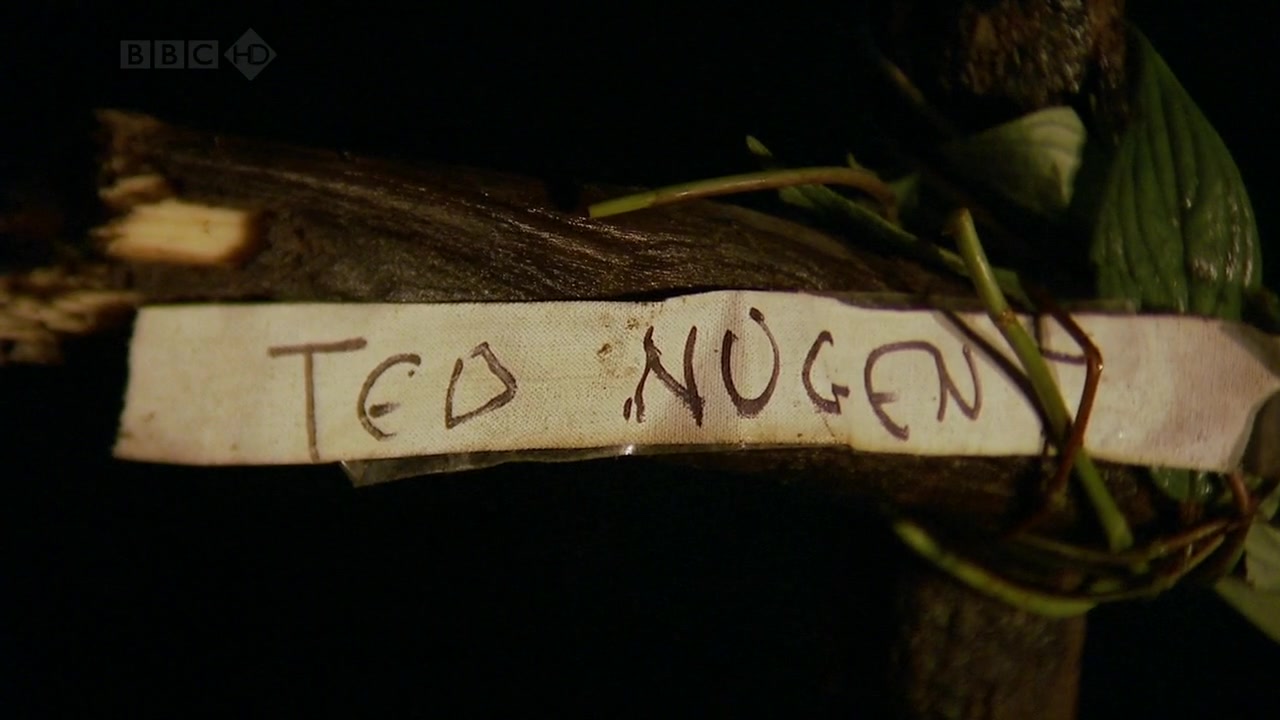 BBC HD
TED NUGENT